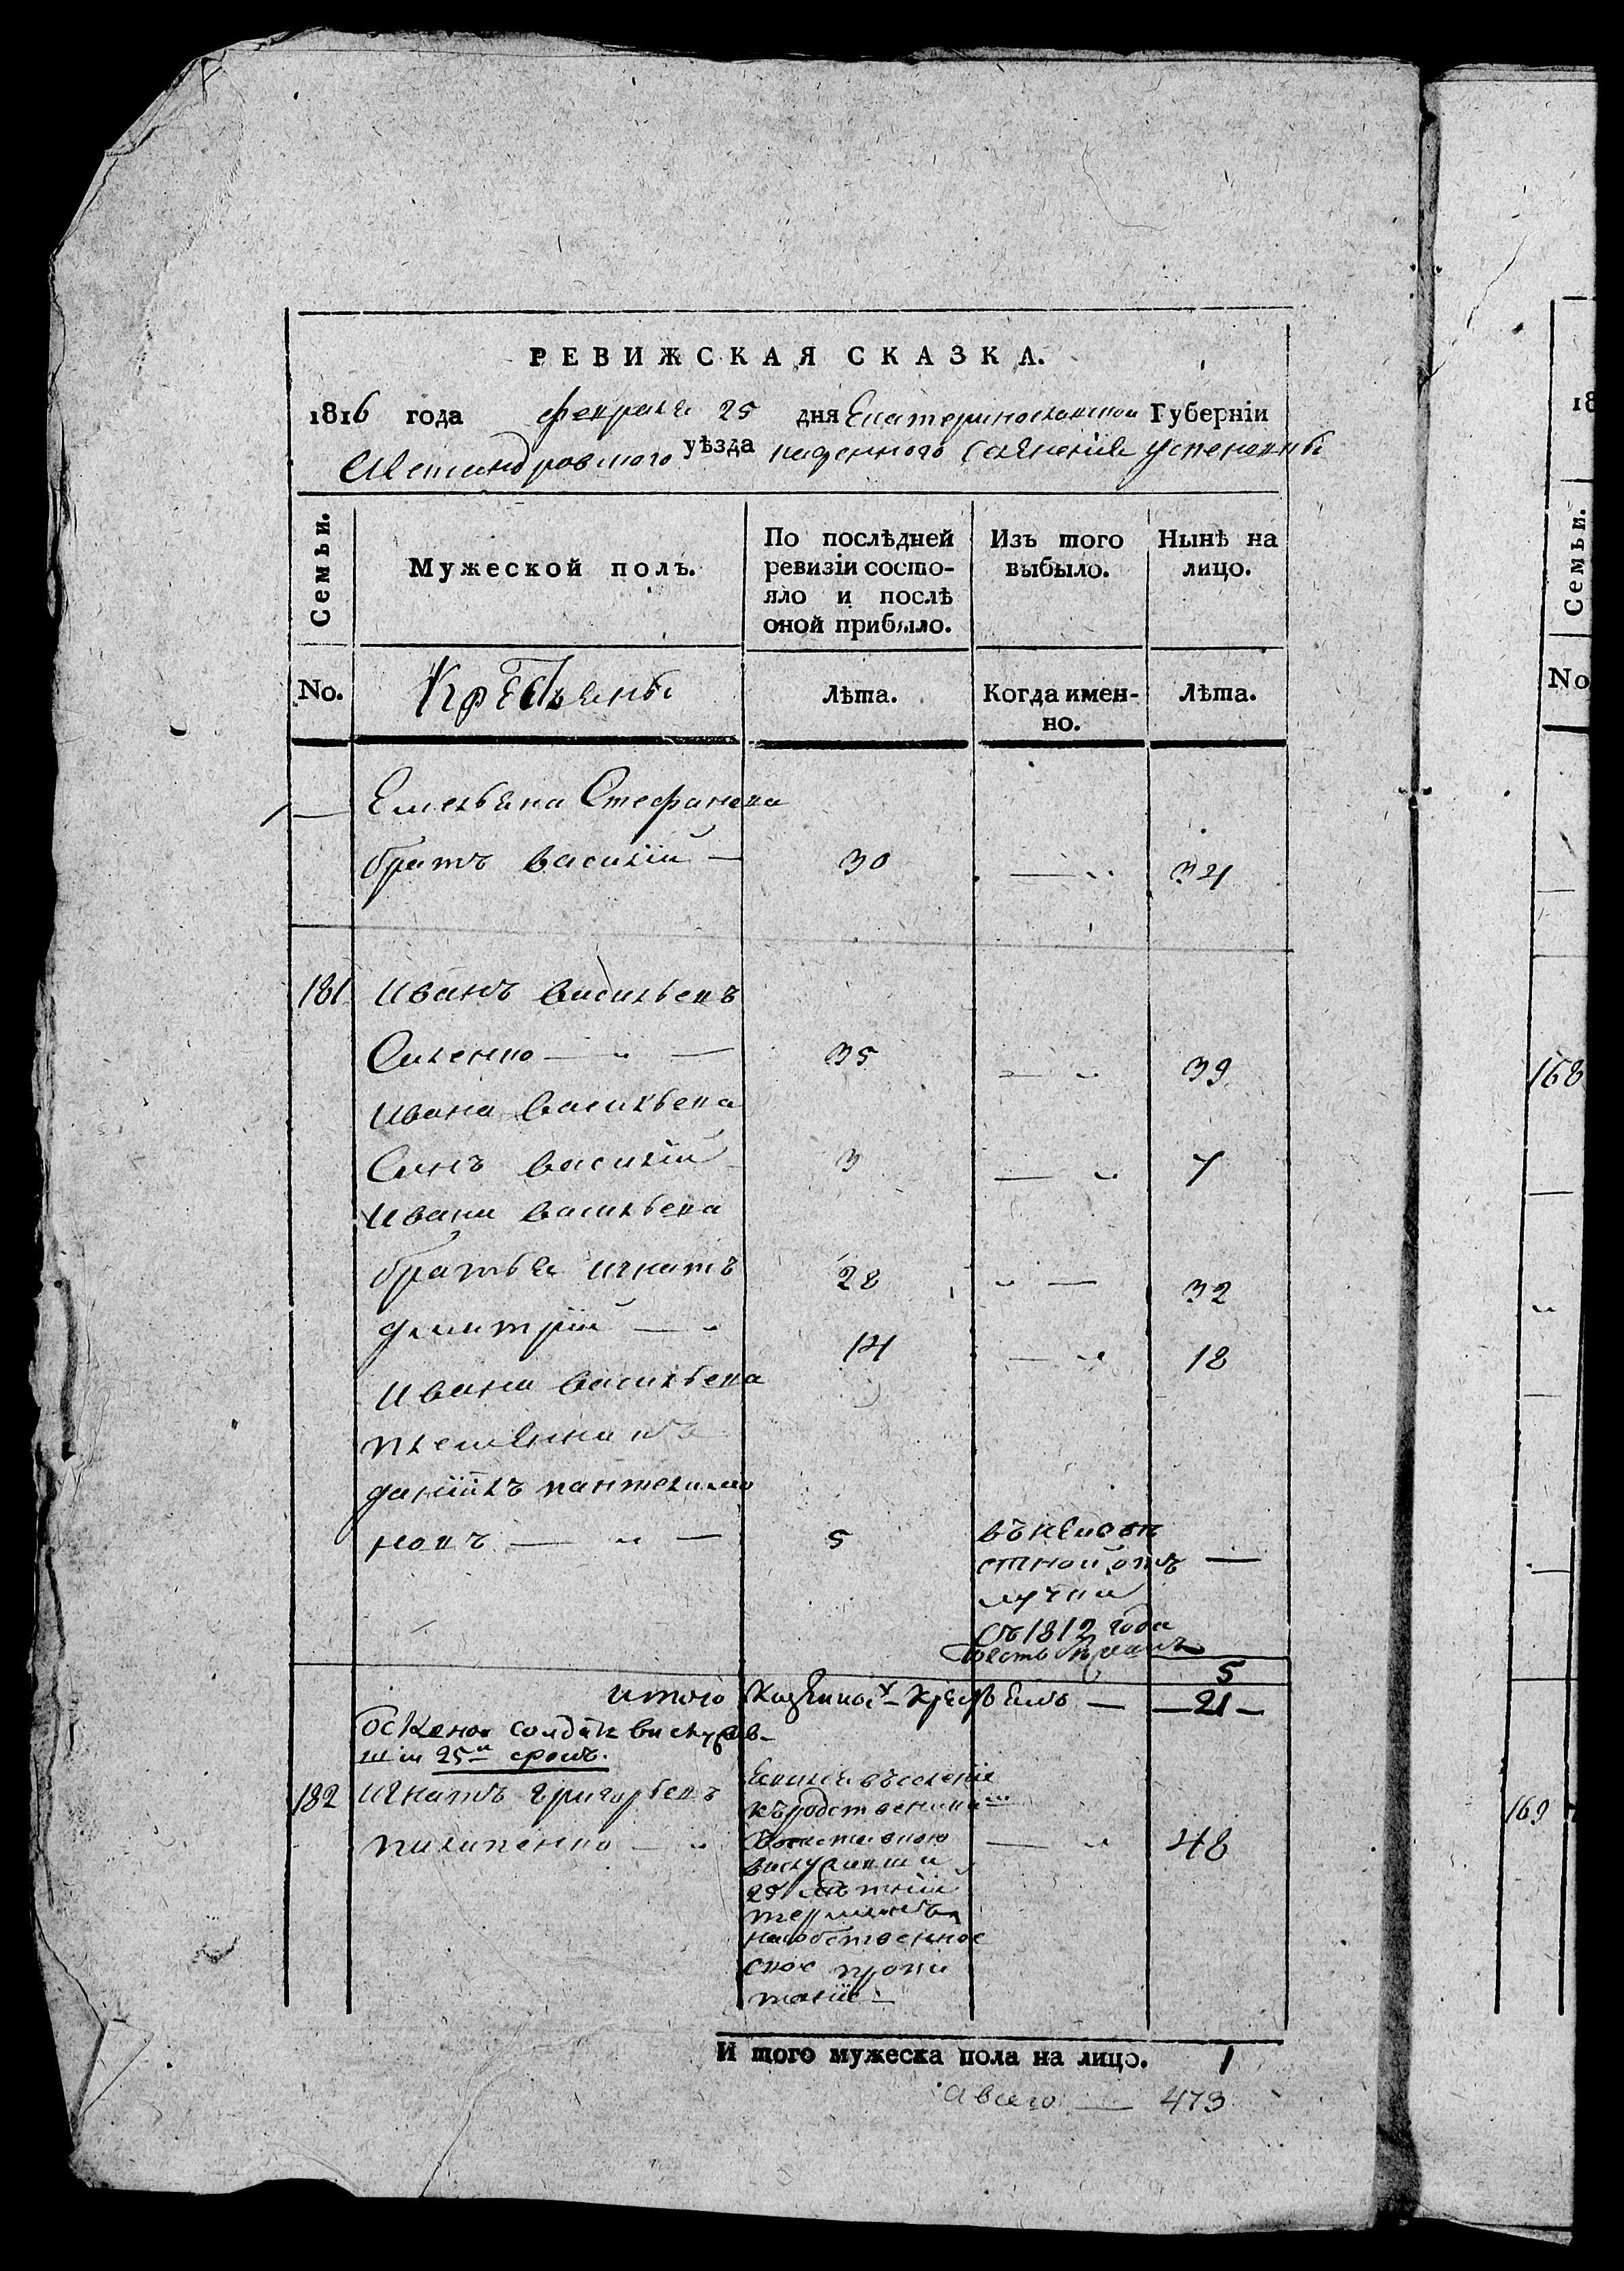 РЕВИЖСКАЯ СКАЗКА.
1816 года февраля 25 дня Екатеринославской Губерніи
Александровского уѣзда казенного селенія Успеновки
Семьи.
Мужеской полъ.
По послѣдней ревизіи состо-
яло и послѣ
оной прибыло.
Изъ того
выбыло.
Нынѣ на
лицо.
No.
Крестьяны
Лѣта.
Когда имен-
но.
Лѣта.
Емельяна Стефанова
братъ василій — 30 — „ 34
181 Иванъ васильевъ
Силенко — „ — 35 — „ 39
Ивана васильева
Сынъ василій 3 — „ 7
Ивана васильева
братья игнатъ 28 „ — 32
дмитрій — „ 14 — „ 18
Ивана васильева
племянникъ
даніилъ пантелимо
новъ — „ — 5
въ неизвѣ
стной отъ —
лучки
съ 1812 года
5
итого Казенных крестьянъ — 21 —
солдатъ выслужив-
шій 25 срокъ.
182 Игнатъ григорьевъ
пилипенко — „ — „ 48
явился въ селеніе
къ родственикамъ
выслуживши
25 лѣтній
терминъ
на собственное
свое пропи
таніе —
И того мужеска пола на лицо. 1
а всего — 473
18
Семьи.
No
168
169